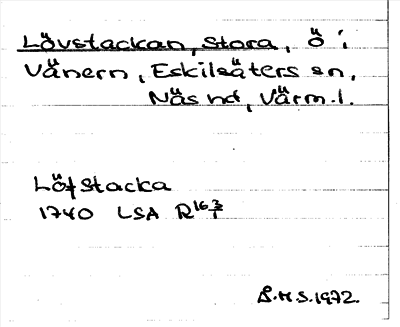 Lövstackan, Stora, ö i
Vänern, Eskilsäters sn,
Näs hd, Värm.l.
Löfstacka
1740 LSA R16 3/1
S.H.S.1972.